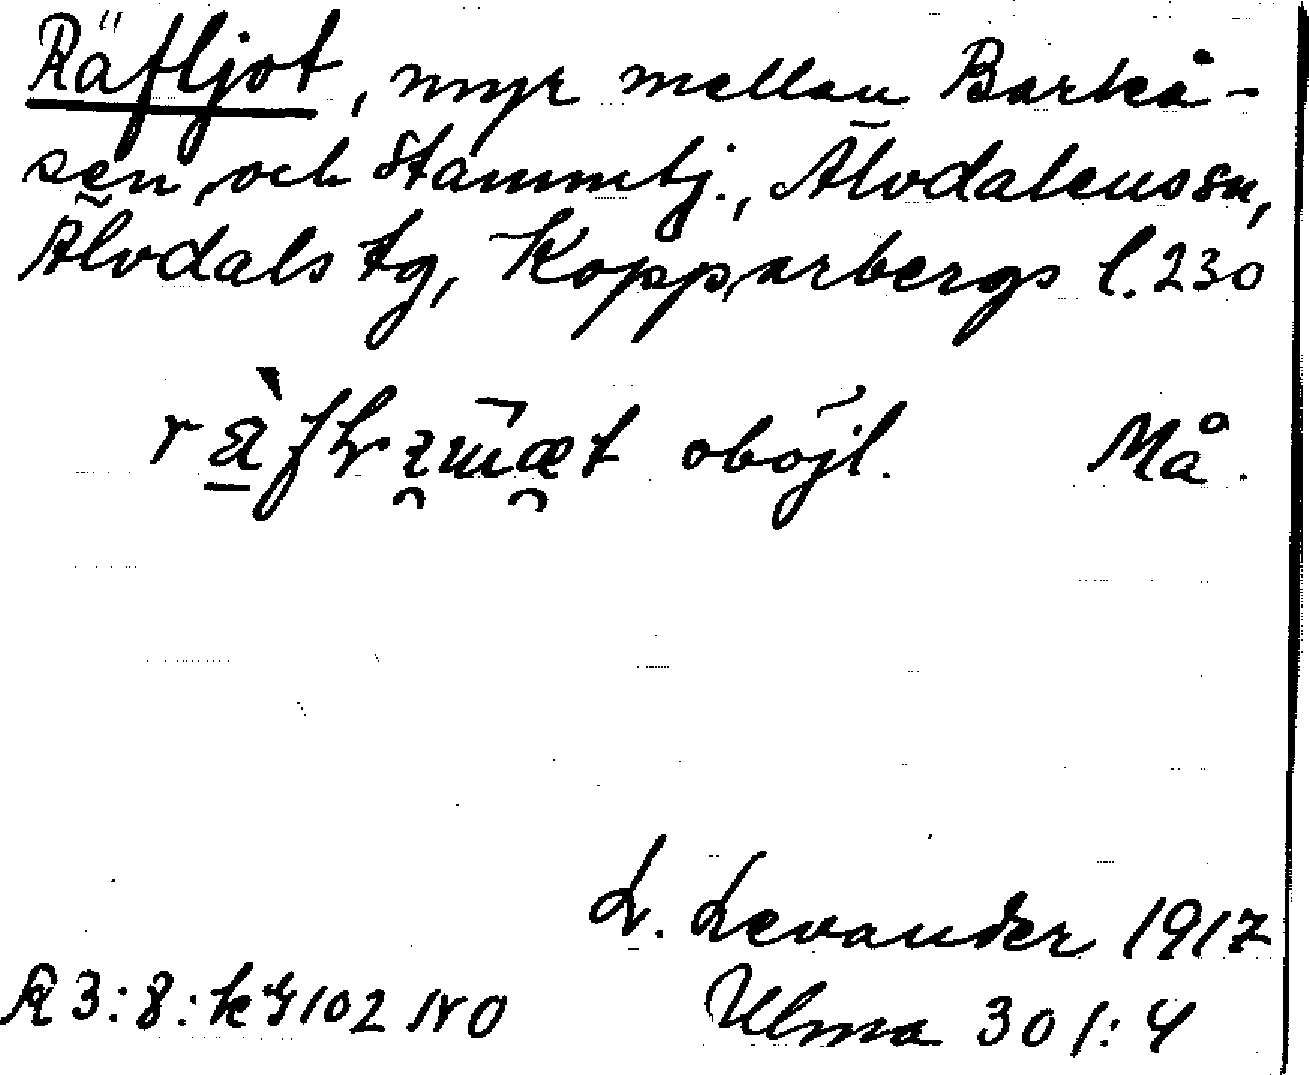 Räfljot, myr mellan Barkå-
sen och Stammtj., Älvdalens sn,
Älvdals tg, Kopparbergs l. 230
oböjl. Må.
L. Levander 1917
R 3:8: 102 N O Ulma 301:4